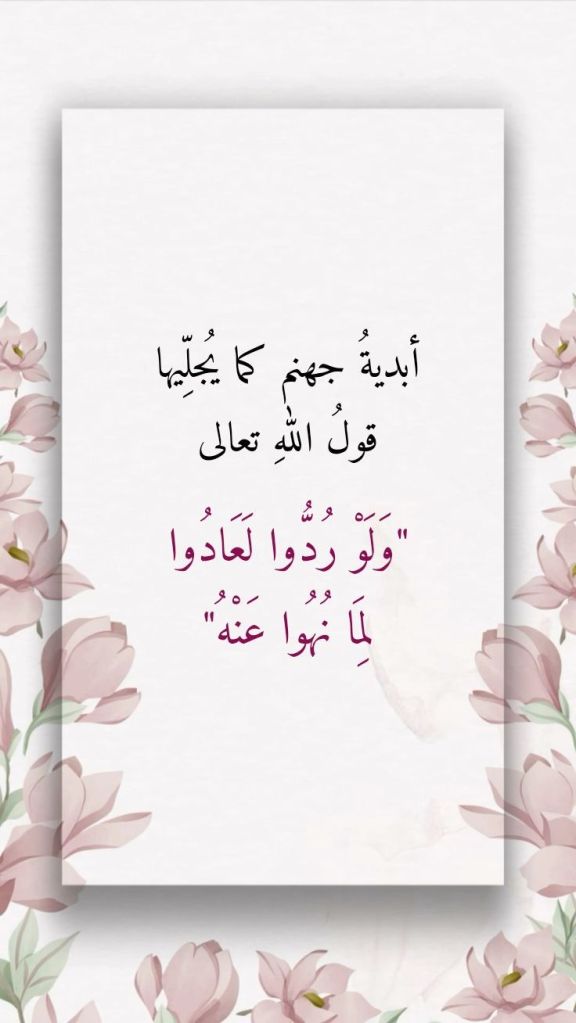 أبديةُ جهنم كما يُجلِّيها
قولُ اللهِ تعالى
"وَلَوْ رُدُّوا لَعَادُوا
لِمَا نُهُوا عَنْهُ"